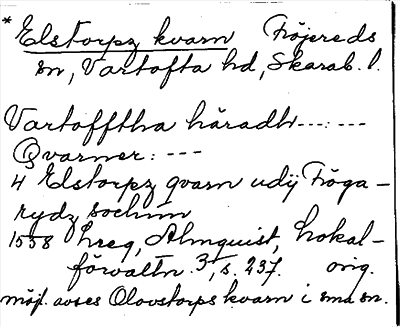 * Elstorpz kvarn Fröjereds
sn, Vartofta hd, Skarab. l.
Vartofftha häradh ---: ---
Qvarner: ---
4 Elstorpz qvarn udij Fröga-
rydz sochnn
1558 hreg, Almquist, Lokal-
förvaltn. 3, s. 237. orig.
möjl. avses Olovstorps kvarn i sma sn.